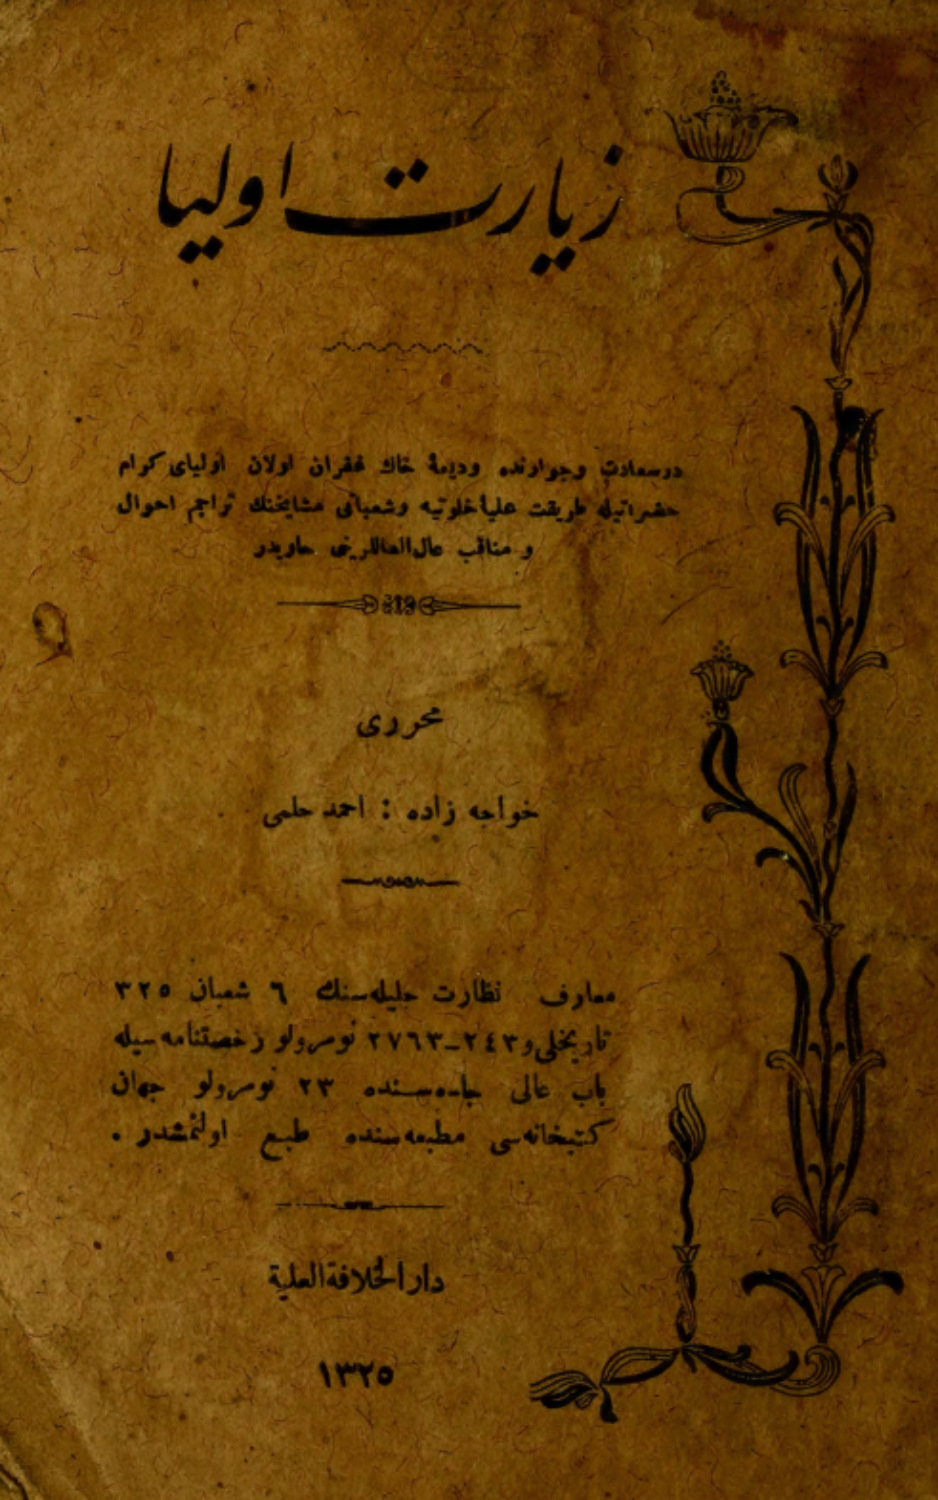 زیارت اولیا
درسعادت وجوارنده ودیعهٔ خاك غفران اولان اولیای کرام
حضراتیله طریقت علیهٔ خلوتیه وشعبانی مشایخنك تراجم احوال
و مناقب عال العاللرینی حاویدر
محرری
خواجه زاده : احمد حلمی
معارف نظارت جلیله‌سنك ٦ شعبان ٣٢٥
تاریخلی و ٢٤٣ـ٢٧٦٣ نومرولو رخصتنامه سیله
باب عالی جاده‌سنده ٢٣ نومرولو جهان
کتبخانه‌سی مطبعه‌سنده طبع اولنمشدر .
دار الخلافة العلیة
١٣٢٥